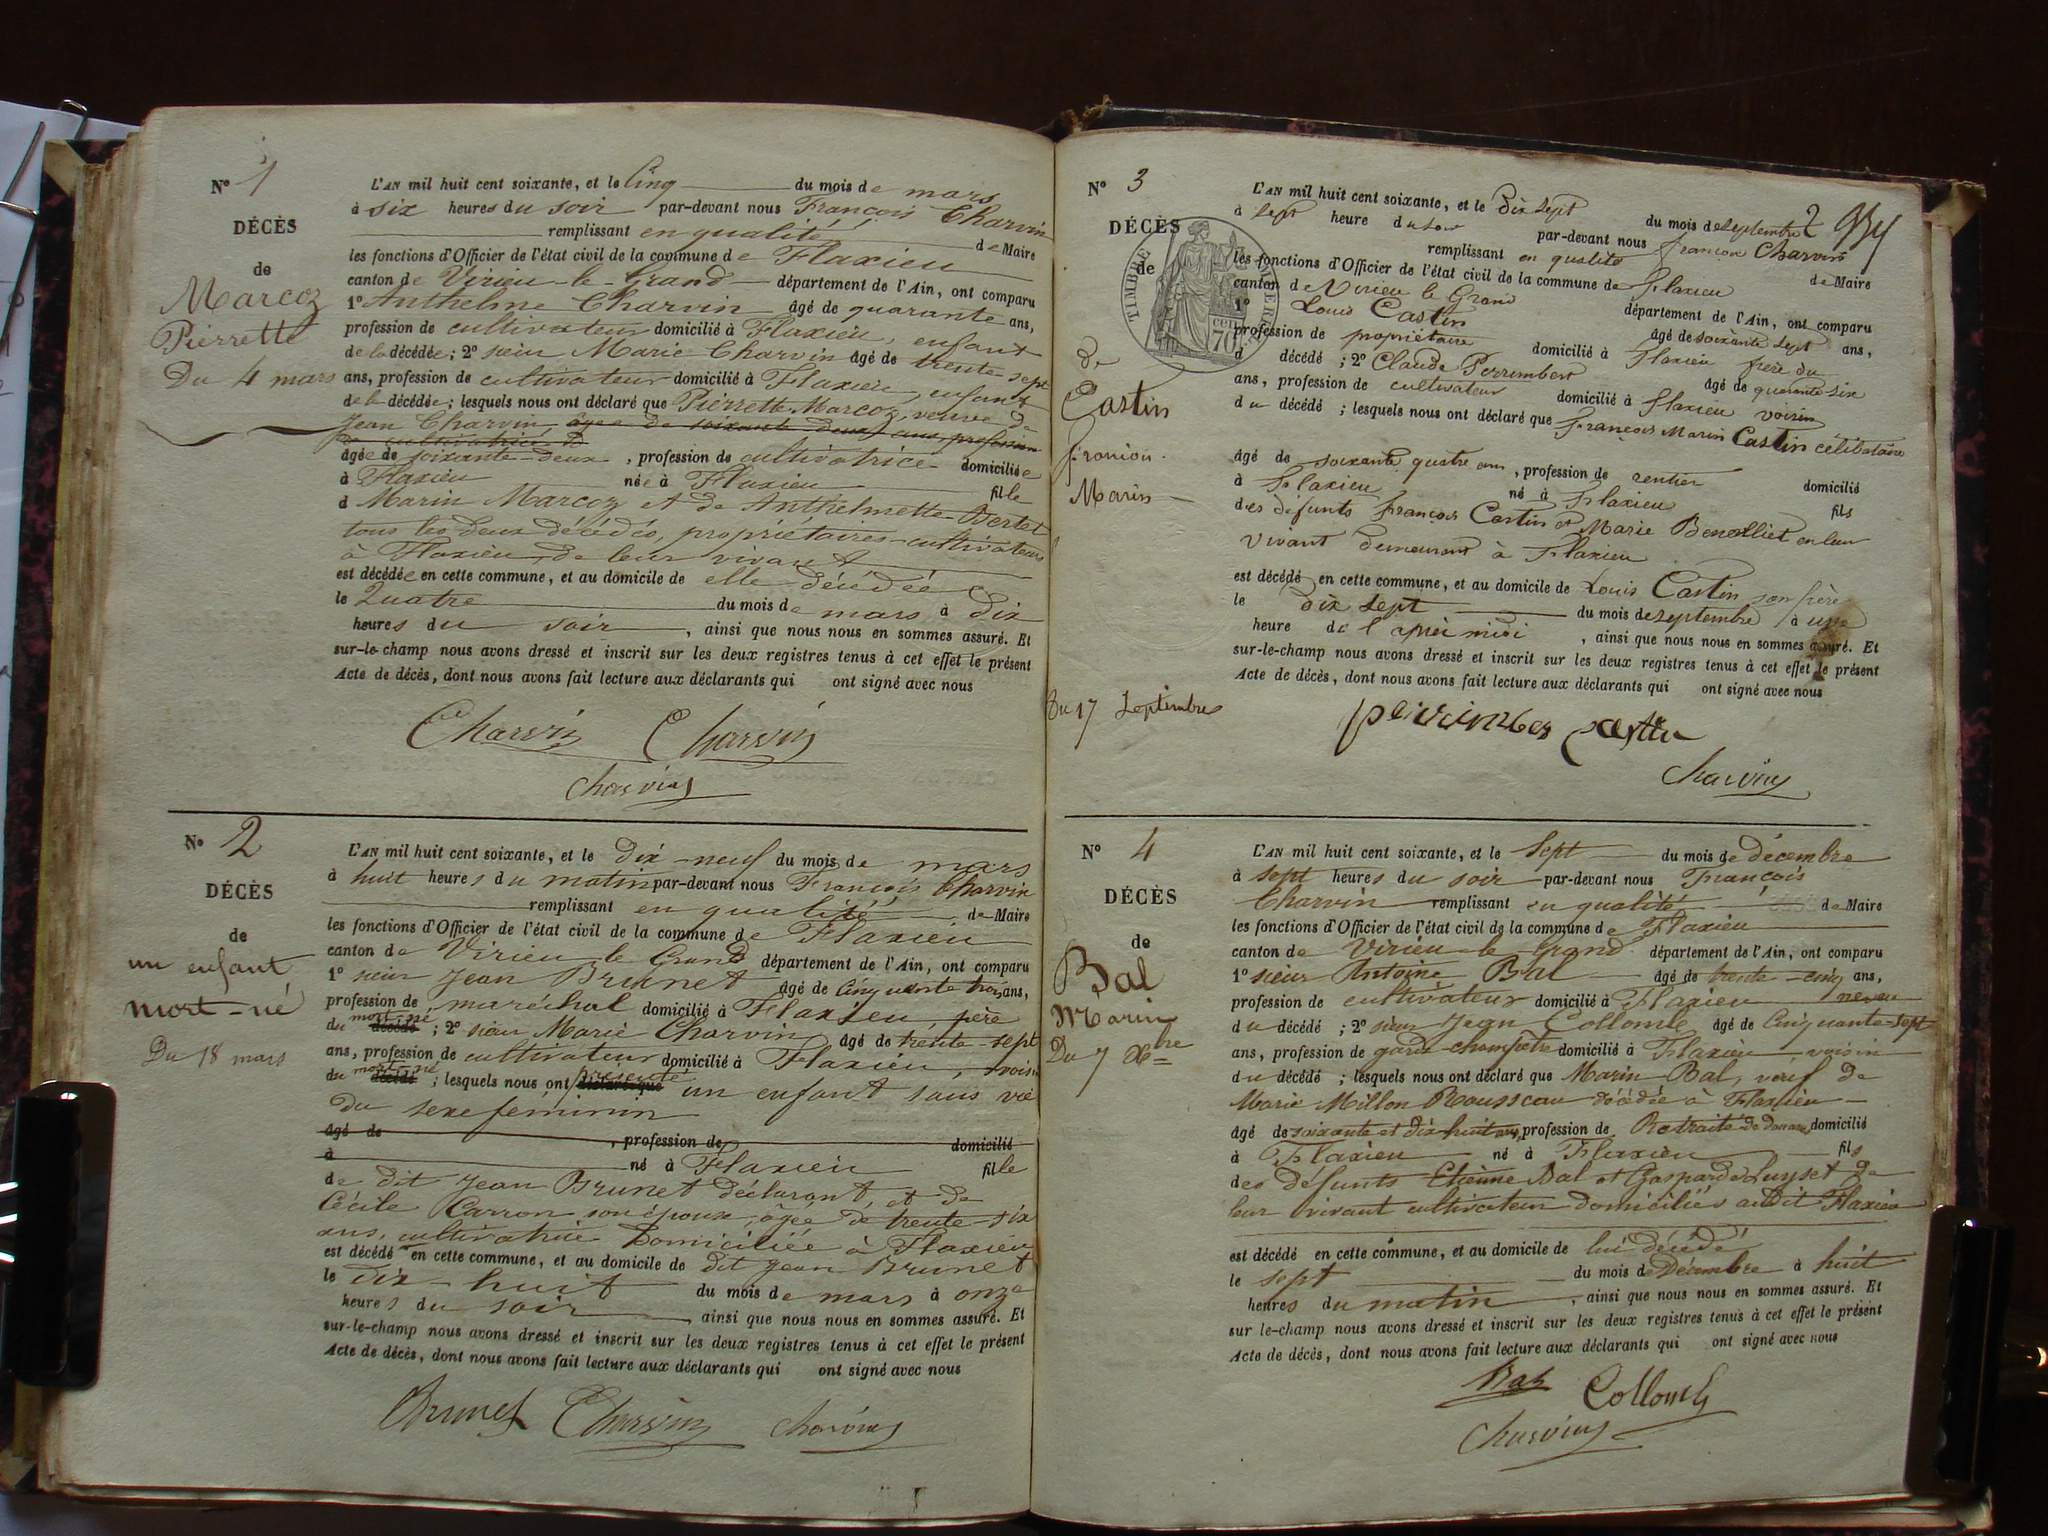 N° 1
DÉCÈS
de
Marcoz
Pierrette
Du 4 mars
L'AN mil huit cent soixante, et le Cinq du mois de mars
à six heures du soir par-devant nous François Charvin
remplissant en qualité de Maire
les fonctions d'Officier de l'état civil de la commune de Flaxieu
canton de Virieu-le-Grand département de l'Ain, ont comparu
1° Anthelme Charvin âgé de quarante ans,
profession de cultivateur domicilié à Flaxieu, enfant
de la décédée; 2° sieur Marie Charvin âgé de trente-sept
ans, profession de cultivateur domicilié à Flaxieu, enfant
de la décédée; lesquels nous ont déclaré que Pierrette Marcoz, veuve de
Jean Charvin, âgée de soixante deux ans, profession
de cultivatrice D
âgée de soixante-deux, profession de cultivatrice domiciliée
à Flaxieu née à Flaxieu fille
d Marin Marcoz et de Anthelmette Bertet
tous les deux décédés, propriétaires-cultivateurs
à Flaxieu, de leur vivant
est décédée en cette commune, et au domicile de elle décédée
le Quatre du mois de mars à dix
heures du soir, ainsi que nous nous en sommes assuré. Et
sur-le-champ nous avons dressé et inscrit sur les deux registres tenus à cet effet le présent
Acte de décès, dont nous avons fait lecture aux déclarants qui ont signé avec nous
Charvin Charvin
Charvin
N° 2
DÉCÈS
de
un enfant
mort-né
Du 18 mars
L'AN mil huit cent soixante, et le dix-neuf du mois de mars
à huit heures du matin par-devant nous François Charvin
remplissant en qualité de Maire
les fonctions d'Officier de l'état civil de la commune de Flaxieu
canton de Virieu le Grand département de l'Ain, ont comparu
1° sieur Jean Brunet âgé de Cinquante trois ans,
profession de maréchal domicilié à Flaxieu père
du mort-né décédé; 2° sieur Marie Charvin âgé de trente-sept
ans, profession de cultivateur domicilié à Flaxieu, voisin
du mort-né décédé; lesquels nous ont présenté déclaré que un enfant sans vie
du sexe féminin
âgé de , profession de domicilié
à né à Flaxieu fille
de dit Jean Brunet déclarant, et de
Cécile Carron son épouse, âgée de trente-six
ans, cultivatrice Domiciliée à Flaxieu
est décédé en cette commune, et au domicile de dit Jean Brunet
le dix-huit du mois de mars à onze
heures du soir, ainsi que nous nous en sommes assuré. Et
sur-le-champ nous avons dressé et inscrit sur les deux registres tenus à cet effet le présent
Acte de décès, dont nous avons fait lecture aux déclarants qui ont signé avec nous
Brunet Charvin Charvin
N° 3
DÉCÈS
de
TIMBRE
cent
70
de
Castin
Marin
Du 17 Septembre
L'AN mil huit cent soixante, et le Dix Sept du mois de septembre 2
à sept heure du soir par-devant nous françois Charvin
remplissant en qualité de Maire
les fonctions d'Officier de l'état civil de la commune de Flaxieu
canton de Virieu le Grand département de l'Ain, ont comparu
1° Louis Castin âgé de soixante sept ans,
profession de propriétaire domicilié à Flaxieu frère du
d décédé; 2° Claude Perrimbert âgé de quarante six
ans, profession de cultivateur domicilié à Flaxieu voisin
du décédé; lesquels nous ont déclaré que françois Marin Castin célibataire
âgé de soixante quatre ans, profession de rentier domicilié
à Flaxieu né à Flaxieu fils
des défunts françois Castin et Marie en leur
vivant demeurant à Flaxieu
est décédé en cette commune, et au domicile de Louis Castin son frère
le dix sept du mois de septembre à une
heure de l'après midi, ainsi que nous nous en sommes assuré. Et
sur-le-champ nous avons dressé et inscrit sur les deux registres tenus à cet effet le présent
Acte de décès, dont nous avons fait lecture aux déclarants qui ont signé avec nous
Castin
Charvin
N° 4
DÉCÈS
de
Bal
Marin
Du 7 Xbre
L'AN mil huit cent soixante, et le Sept du mois de décembre
à sept heures du soir par-devant nous François
Charvin remplissant en qualité de Maire
les fonctions d'Officier de l'état civil de la commune de Flaxieu
canton de Virieu-le-Grand département de l'Ain, ont comparu
1° sieur Antoine Bal âgé de trente-cinq ans,
profession de cultivateur domicilié à Flaxieu neveu
du décédé; 2° sieur Jean Collomb âgé de Cinquante-sept
ans, profession de garde-champêtre domicilié à Flaxieu, voisin
du décédé; lesquels nous ont déclaré que Marin Bal, veuf de
Marie Millon Rousseau décédée à Flaxieu
âgé de soixante et dix-huit ans, profession de Retraité de douanes domicilié
à Flaxieu né à Flaxieu fils
des défunts Etienne Bal et Gasparde Luyset de
leur vivant cultivateurs domiciliés audit Flaxieu
est décédé en cette commune, et au domicile de lui décédé
le sept du mois de Décembre à huit
heures du matin, ainsi que nous nous en sommes assuré. Et
sur le-champ nous avons dressé et inscrit sur les deux registres tenus à cet effet le présent
Acte de décès, dont nous avons fait lecture aux déclarants qui ont signé avec nous
Bal Collomb
Charvin